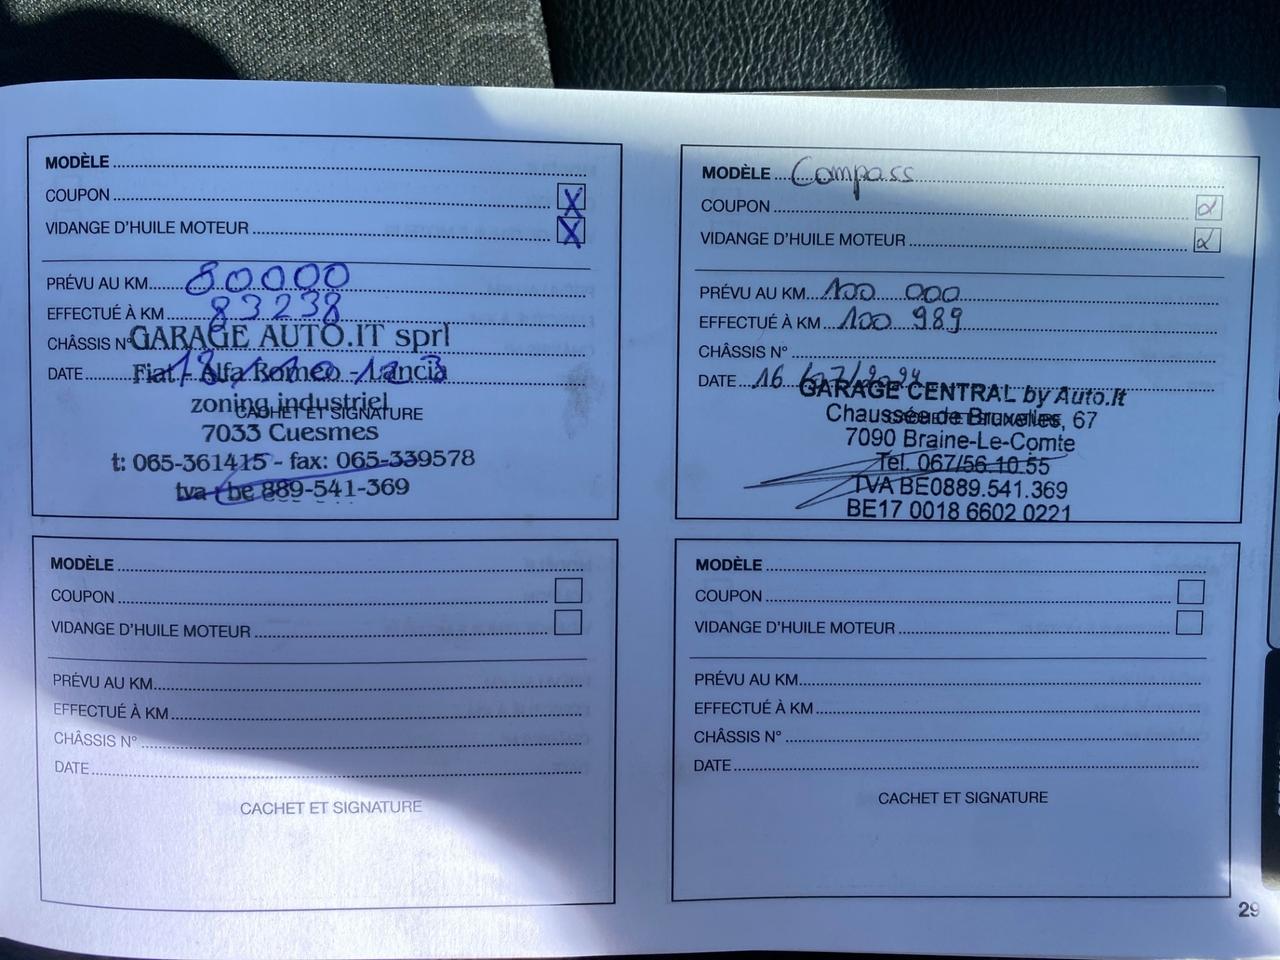 MODÈLE
COUPON X
VIDANGE D'HUILE MOTEUR X
PRÉVU AU KM 80000
EFFECTUÉ À KM 83238
CHÂSSIS N°
GARAGE AUTO.IT sprl
DATE 18/10/23
Fiat - Alfa Romeo - Lancia
zoning industriel
CACHET ET SIGNATURE
7033 Cuesmes
t: 065-361415 - fax: 065-339578
tva : be 889-541-369
MODÈLE Compass
COUPON
VIDANGE D'HUILE MOTEUR
PRÉVU AU KM 100 000
EFFECTUÉ À KM 100 989
CHÂSSIS N°
DATE 16/07/2024
GARAGE CENTRAL by Auto.It
Chaussée de Bruxelles, 67
CACHET ET SIGNATURE
7090 Braine-Le-Comte
Tel. 067/56.10.55
TVA BE0889.541.369
BE17 0018 6602 0221
MODÈLE
COUPON
VIDANGE D'HUILE MOTEUR
PRÉVU AU KM
EFFECTUÉ À KM
CHÂSSIS N°
DATE
CACHET ET SIGNATURE
MODÈLE
COUPON
VIDANGE D'HUILE MOTEUR
PRÉVU AU KM
EFFECTUÉ À KM
CHÂSSIS N°
DATE
CACHET ET SIGNATURE
29